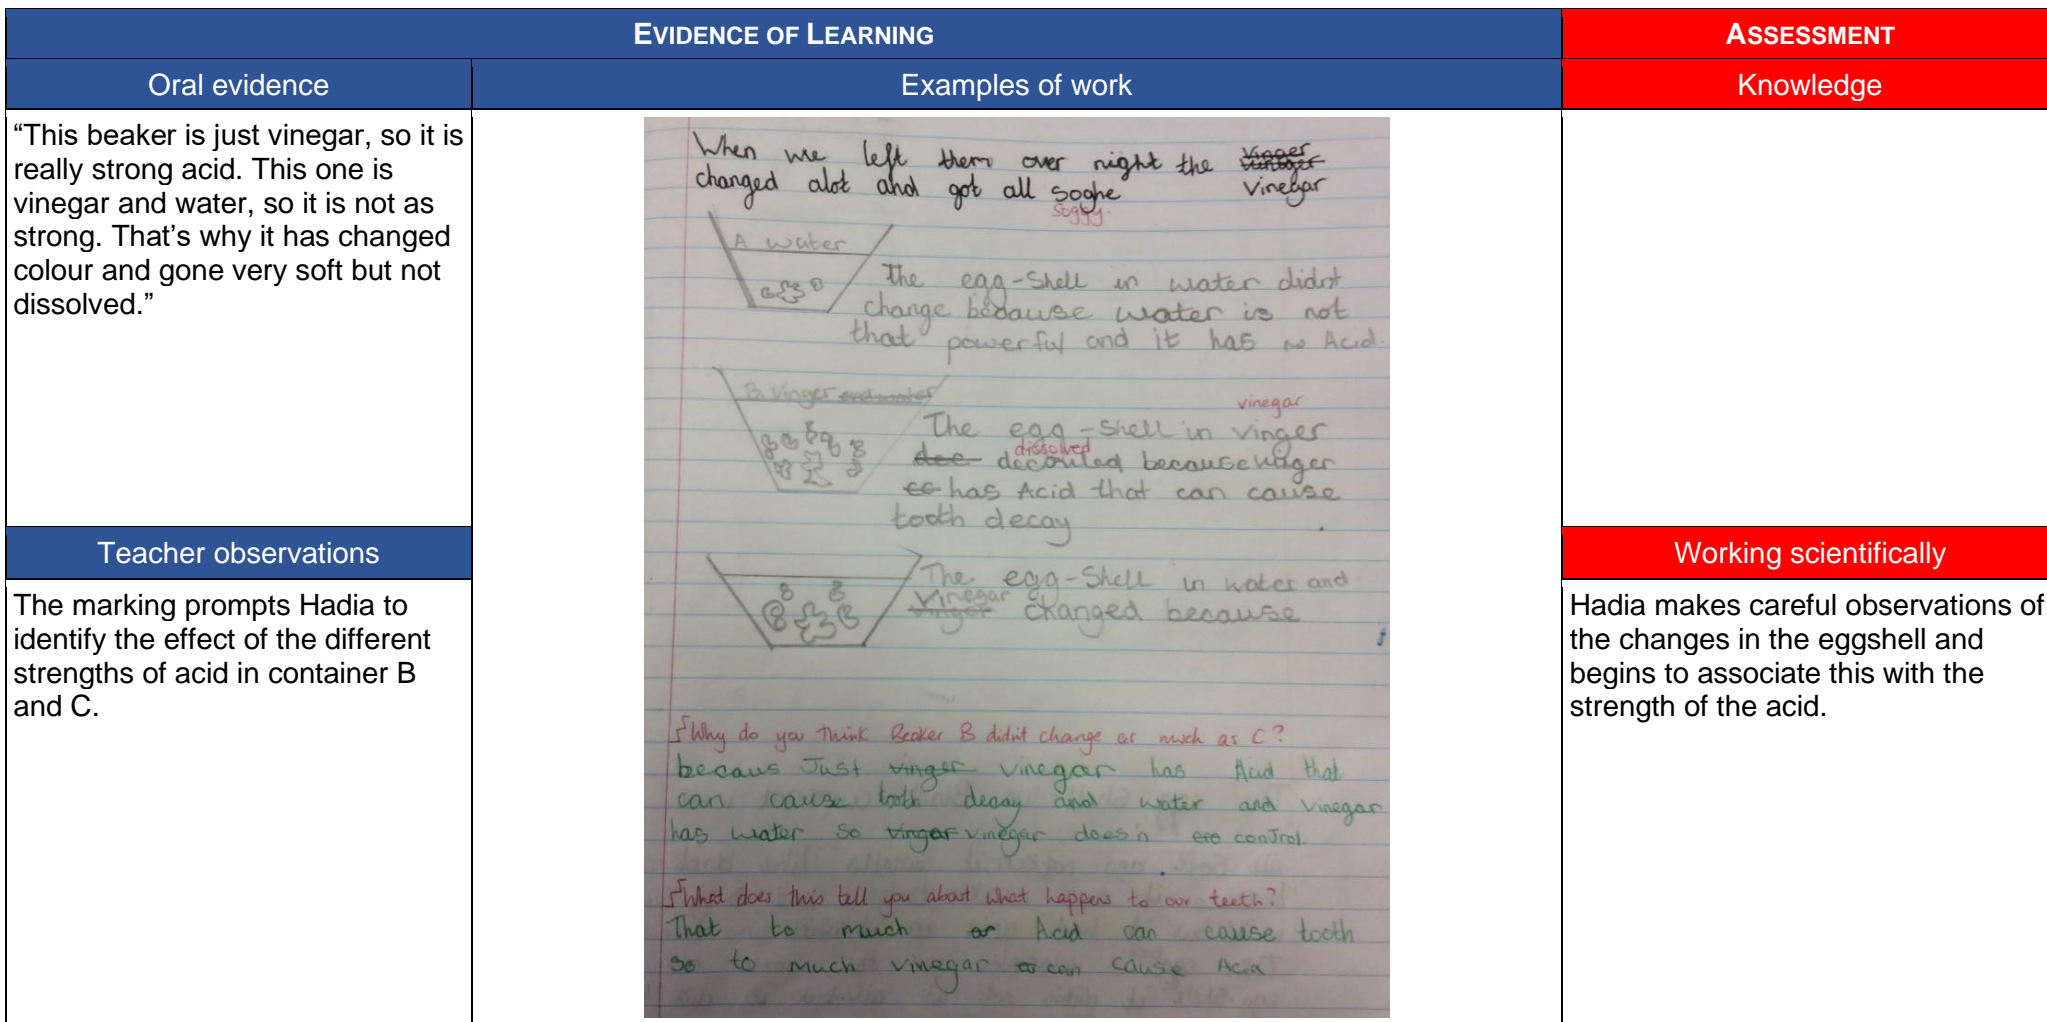 EVIDENCE OF LEARNING
ASSESSMENT
Oral evidence
Examples of work
Knowledge
“This beaker is just vinegar, so it is
really strong acid. This one is
vinegar and water, so it is not as
strong. That’s why it has changed
colour and gone very soft but not
dissolved.”
Teacher observations
The marking prompts Hadia to
identify the effect of the different
strengths of acid in container B
and C.
When we left them over night the Vinger
changed alot and got all soghe Vinegar
soggy.
A water
The egg-Shell in water didnt
change because water is not
that powerful and it has no Acid.
B Vinger and water
vinegar
The egg-Shell in vinger
dissolved
dec because vinger
has Acid that can cause
tooth decay
The egg-Shell in water and
Vinegar
vinger changed because
Why do you think Beaker B didn't change as much as C?
becaus Just vinger vinegar has Acid that
can cause tooth decay and water and vinegar
has water so vingar vinegar does'n control.
What does this tell you about what happens to our teeth?
That to much or Acid can cause tooth
so to much vinegar can cause Acid
Working scientifically
Hadia makes careful observations of
the changes in the eggshell and
begins to associate this with the
strength of the acid.